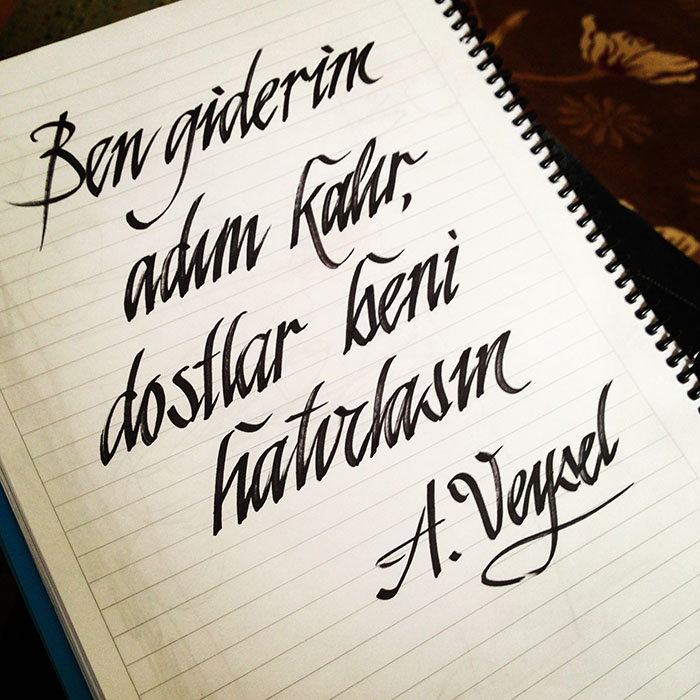 Ben giderim
adım kalır,
dostlar beni
hatırlasın
A. Veysel